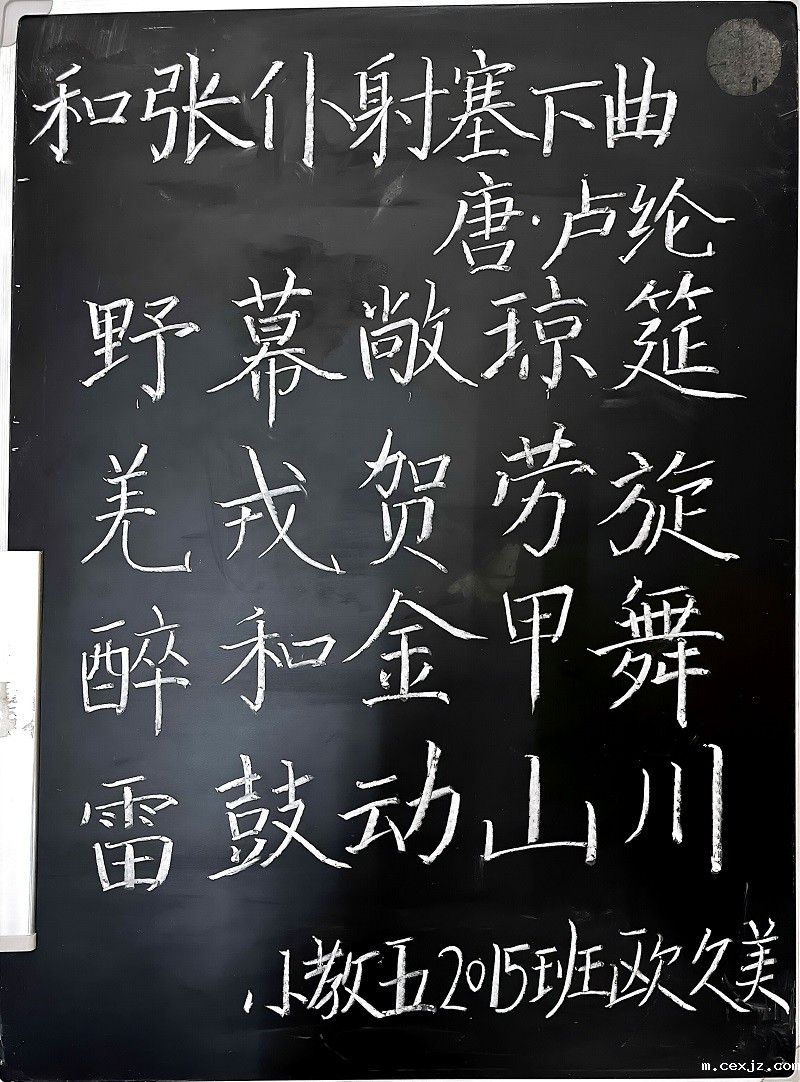 和张仆射塞下曲
唐·卢纶
野幕敞琼筵
羌戎贺劳旋
醉和金甲舞
雷鼓动山川
小教五2015班欧久美
m.cexjz.com